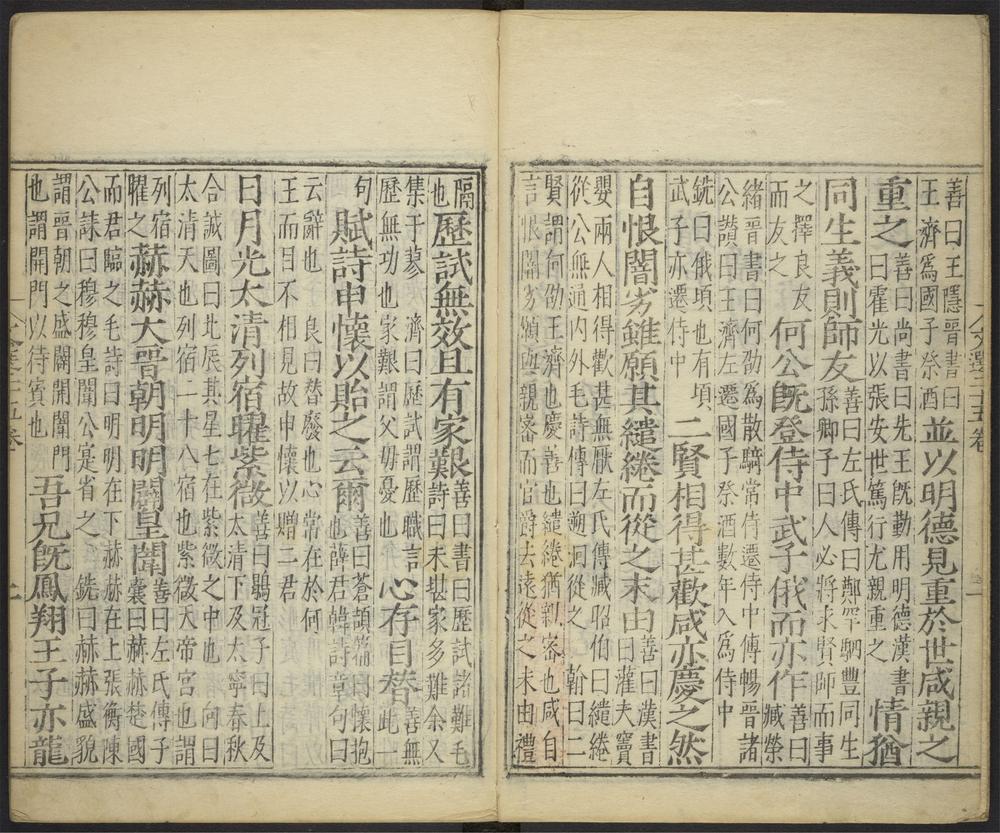 善曰王隱晉書曰
王濟爲國子祭酒
並以明德見重於世咸親之
重之
善曰尚書曰先王旣勤用明德漢書
曰霍光以張安世篤行尤親重之
情猶
同生義則師友
善曰左氏傳曰鄭罕駟豐同生
孫卿子曰人必將求賢師而事
之擇良友
而友之
何公旣登侍中武子俄而亦作
善曰
臧榮
緒晉書曰何劭爲散騎常侍遷侍中傳暢晉諸
公讚曰王濟左遷國子祭酒數年入爲侍中
銑曰俄頃也有頃
武子亦遷侍中
二賢相得甚歡咸亦慶之然
自恨闇劣雖願其繾綣而從之末由
善曰漢書
曰灌夫竇
嬰兩人相得歡甚無厭左氏傳臧昭伯曰繾綣
從公無通内外毛詩傳曰遡洄從之
翰曰二
賢謂何劭王濟也慶善也繾綣猶親密也咸自
言恨闇劣願與親密而官爵去遠從之末由禮
隔
也
歷試無效且有家艱
善曰書曰歷試諸難毛
詩曰未堪家多難余又
集于蓼
濟曰歷試謂歷職言
歷無功也家艱謂父母憂也
心存目替
善無
此一
句
賦詩申懷以貽之云爾
善曰蒼頡篇曰懷抱
也薛君韓詩章句曰
云辭也
良曰替廢也心常在於何
王而目不相見故申懷以贈二君
日月光太清列宿曜紫微
善曰鶡冠子曰上及
太清下及太寧春秋
合誠圖曰北辰其星七在紫微之中也
向曰
太清天也列宿二十八宿也紫微天帝宮也謂
列宿
曜之
赫赫大晉朝明明闢皇闈
善曰左氏傳子
囊曰赫赫楚國
而君臨之毛詩曰明明在下赫赫在上張衡陳
公誄曰穆穆皇闈公寔省之
銑曰赫赫盛貌
謂晉朝之盛闢開闈門
也謂開門以待賓也
吾兄旣鳳翔王子亦龍